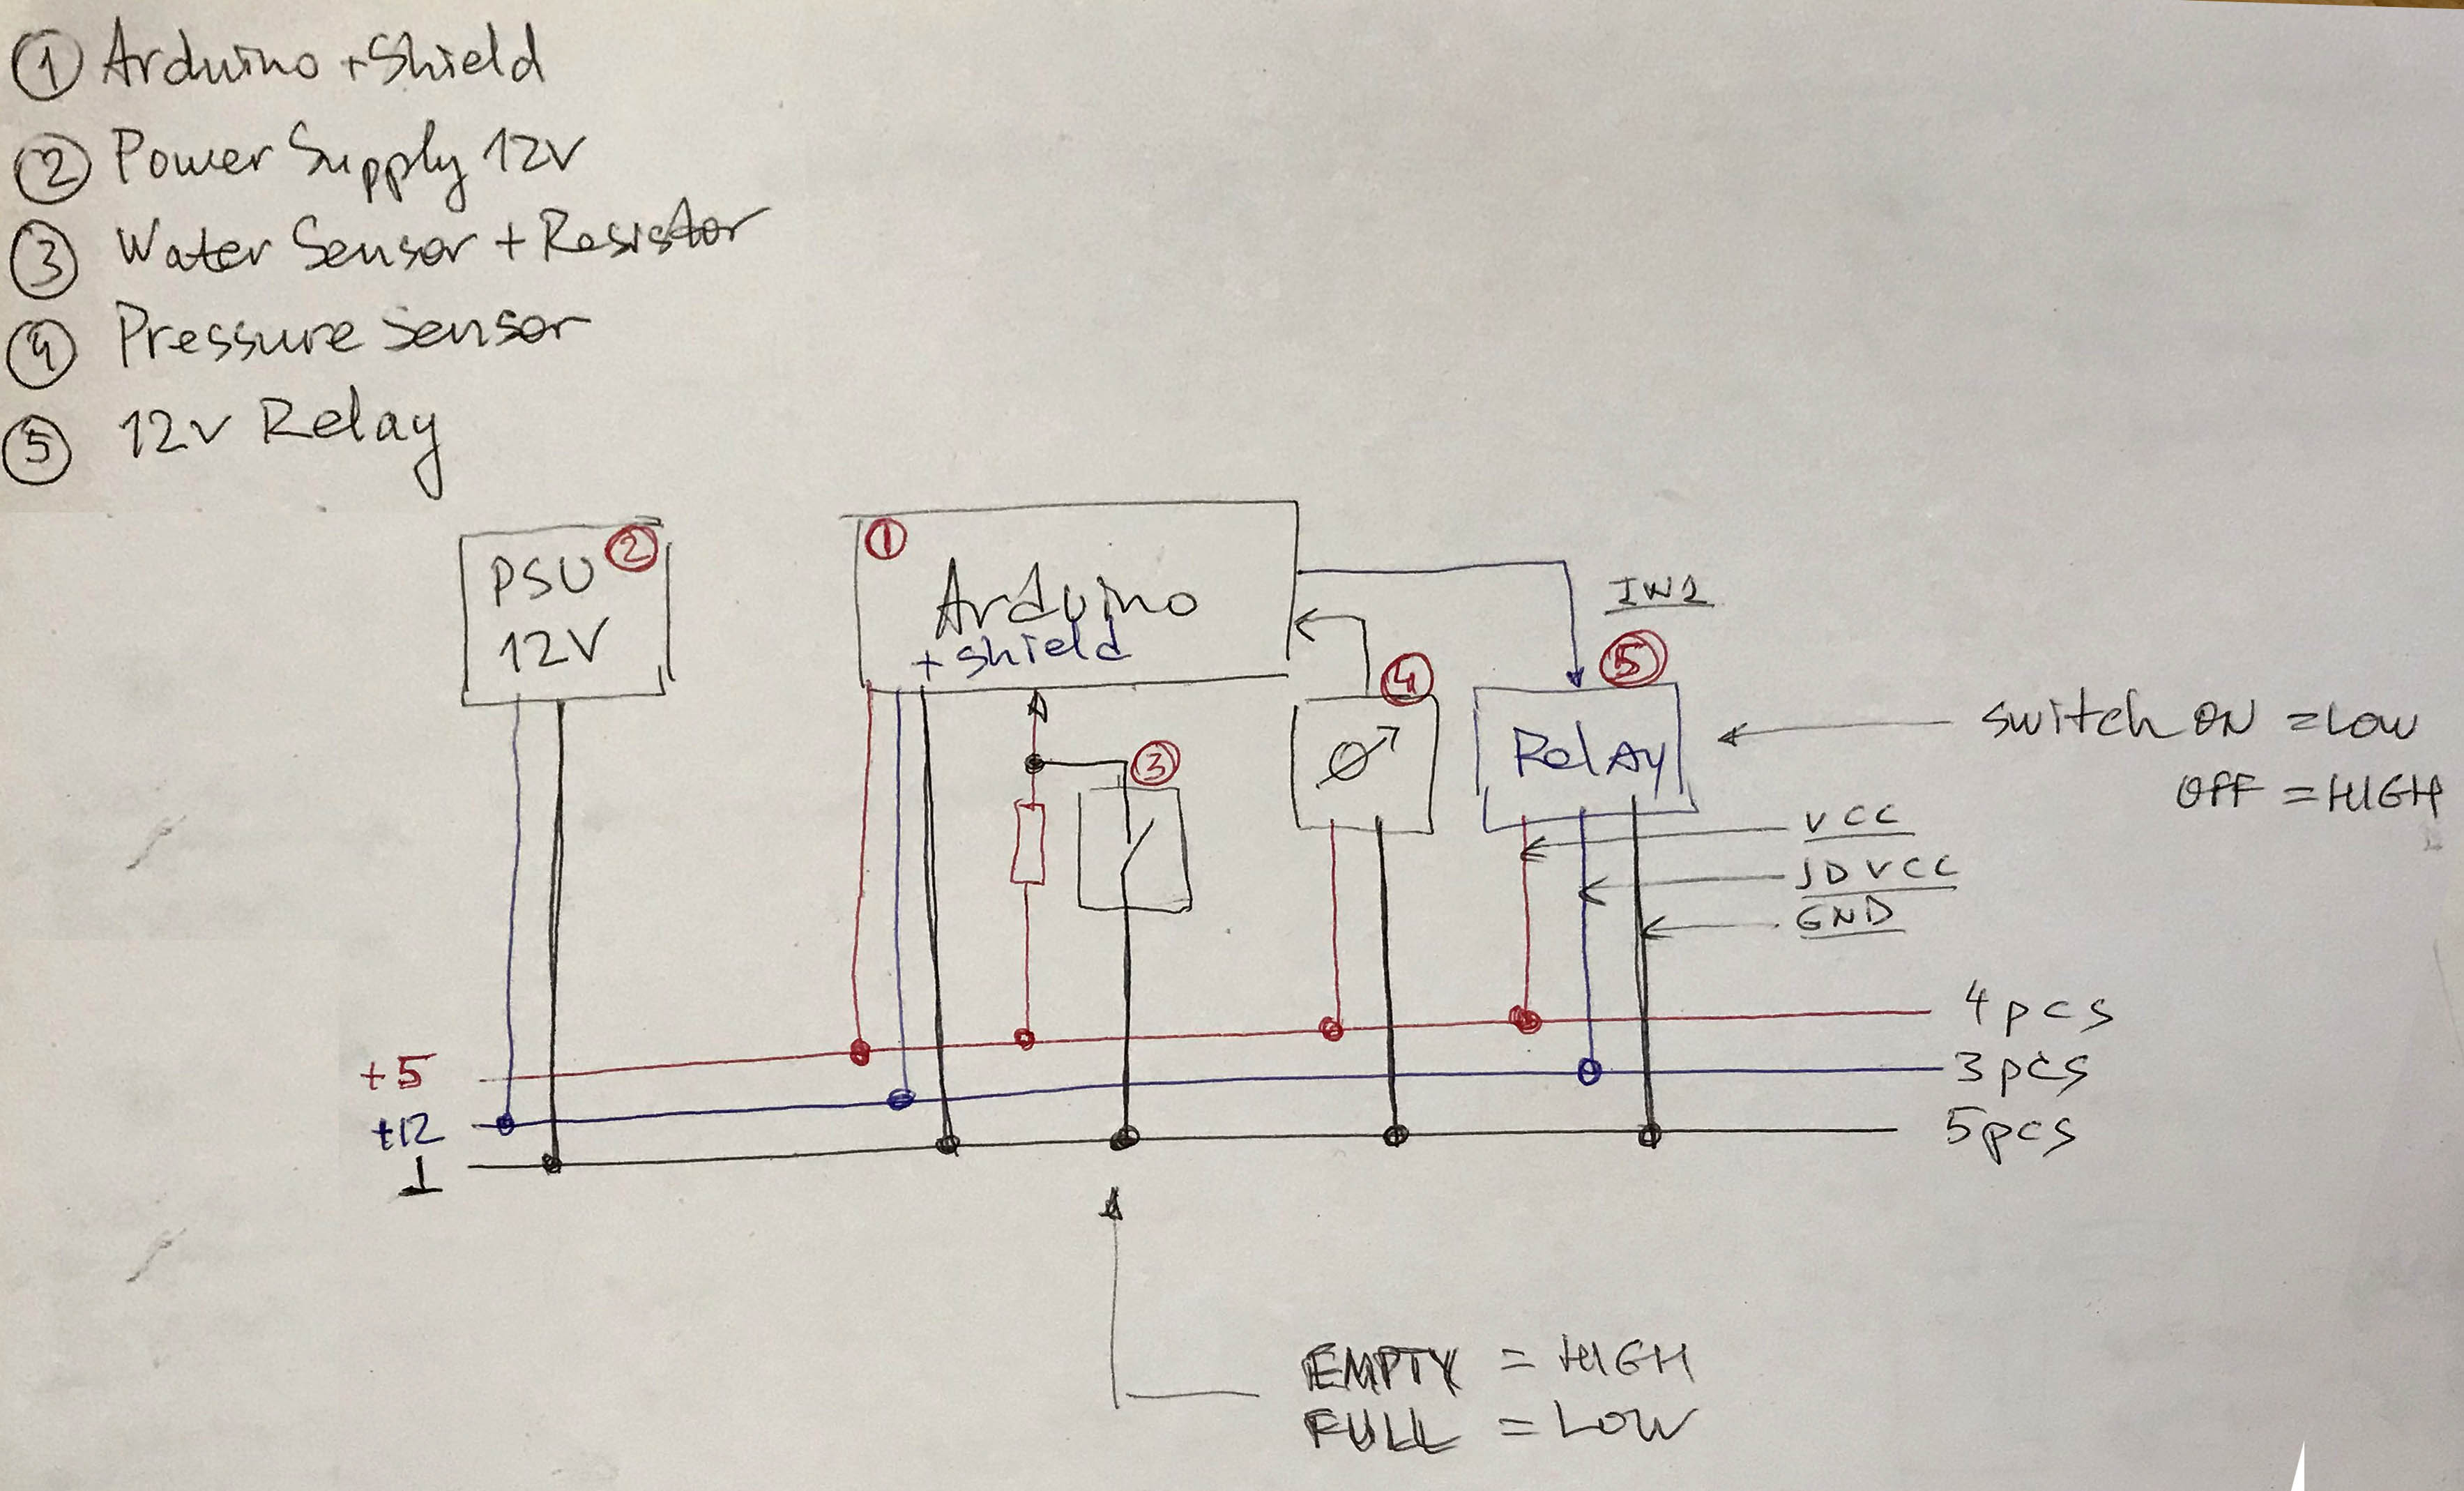 ① Arduino + Shield
② Power Supply 12V
③ Water Sensor + Resistor
④ Pressure Sensor
⑤ 12V Relay
PSU ②
12V
①
Arduino
+ shield
③
④
IN1
⑤
Relay
switch ON = LOW
OFF = HIGH
VCC
JDVCC
GND
+5
4 pcs
+12
3 pcs
5 pcs
EMPTY = HIGH
FULL = LOW